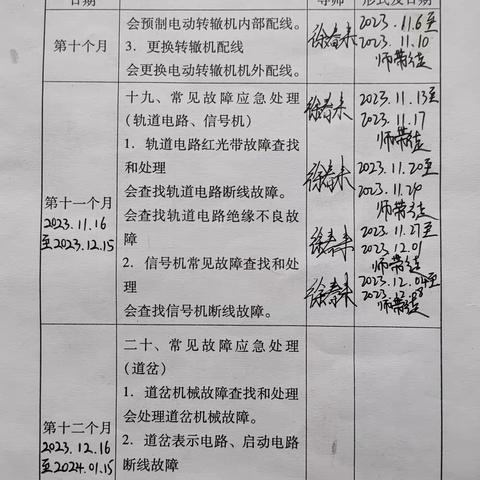 日期
导师
形式及日期
第十个月
会预制电动转辙机内部配线。
3. 更换转辙机配线
会更换电动转辙机机外配线。
徐春来
2023.11.6至
2023.11.10
师带徒
第十一个月
2023.11.16
至2023.12.15
十九、常见故障应急处理
(轨道电路、信号机)
1. 轨道电路红光带故障查找
和处理
会查找轨道电路断线故障。
会查找轨道电路绝缘不良故
障
2. 信号机常见故障查找和处
理
会查找信号机断线故障。
徐春来
2023.11.13至
2023.11.17
师带徒
徐春来
2023.11.20至
2023.11.24
师带徒
徐春来
2023.11.27至
2023.12.01
师带徒
徐春来
2023.12.04至
2023.12.08
师带徒
第十二个月
2023.12.16
至2024.01.15
二十、常见故障应急处理
(道岔)
1. 道岔机械故障查找和处理
会处理道岔机械故障。
2. 道岔表示电路、启动电路
断线故障